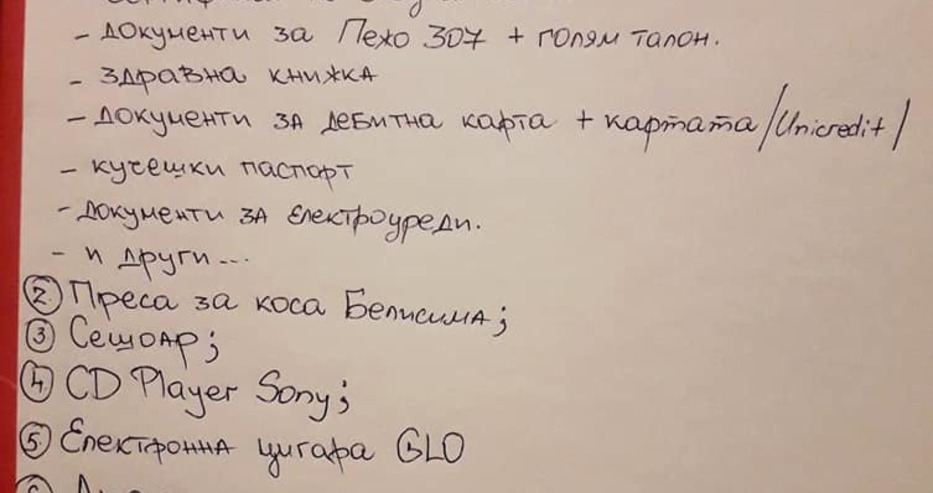 - документи за Пежо 307 + голям талон.
- здравна книжка
- документи за дебитна карта + картата /Unicredit/
- кучешки паспорт
- документи за електроуреди.
- и други...
② Преса за коса Белисима;
③ Сешоар;
④ CD Player Sony;
⑤ Електронна цигара GLO